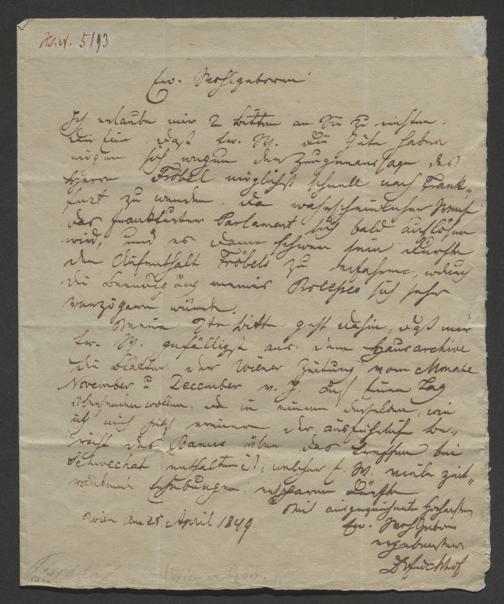 Hs.N. 5/93
Ew. Wohlgeboren!
Ich erlaube mir 2 Bitten an Sie zu richten.
Die eine daß Ew. W. die Güte haben
mögen sich wegen der Zeugenaussage des
Herrn Fröbel möglichst schnell nach Frank-
furt zu wenden, da wahrscheinlicher Weise
das Frankfurter Parlament sich bald auflösen
wird, und es dann schwer sein dürfte
den Aufenthalt Fröbels zu erfahren, wodurch
die Beendigung meines Prozesses sich sehr
verzögern würde.
Meine 2te Bitte geht dahin, daß mir
Ew. W. gefälligst aus dem Hausarchive
die Blätter der Wiener Zeitung vom Monate
November u December v. J. auf einen Tag
übersenden wollen, da in einem derselben, wie
ich mich jetzt erinnere der ausführliche Be-
richt des Banus über das Treffen bei
Schwechat enthalten ist, welcher E. W. viele zeit-
raubende Erhebungen ersparen dürfte.
Mit ausgezeichneter Hochachtung
Wien am 25 April 1849
Ew. Wohlgeboren
ergebenster